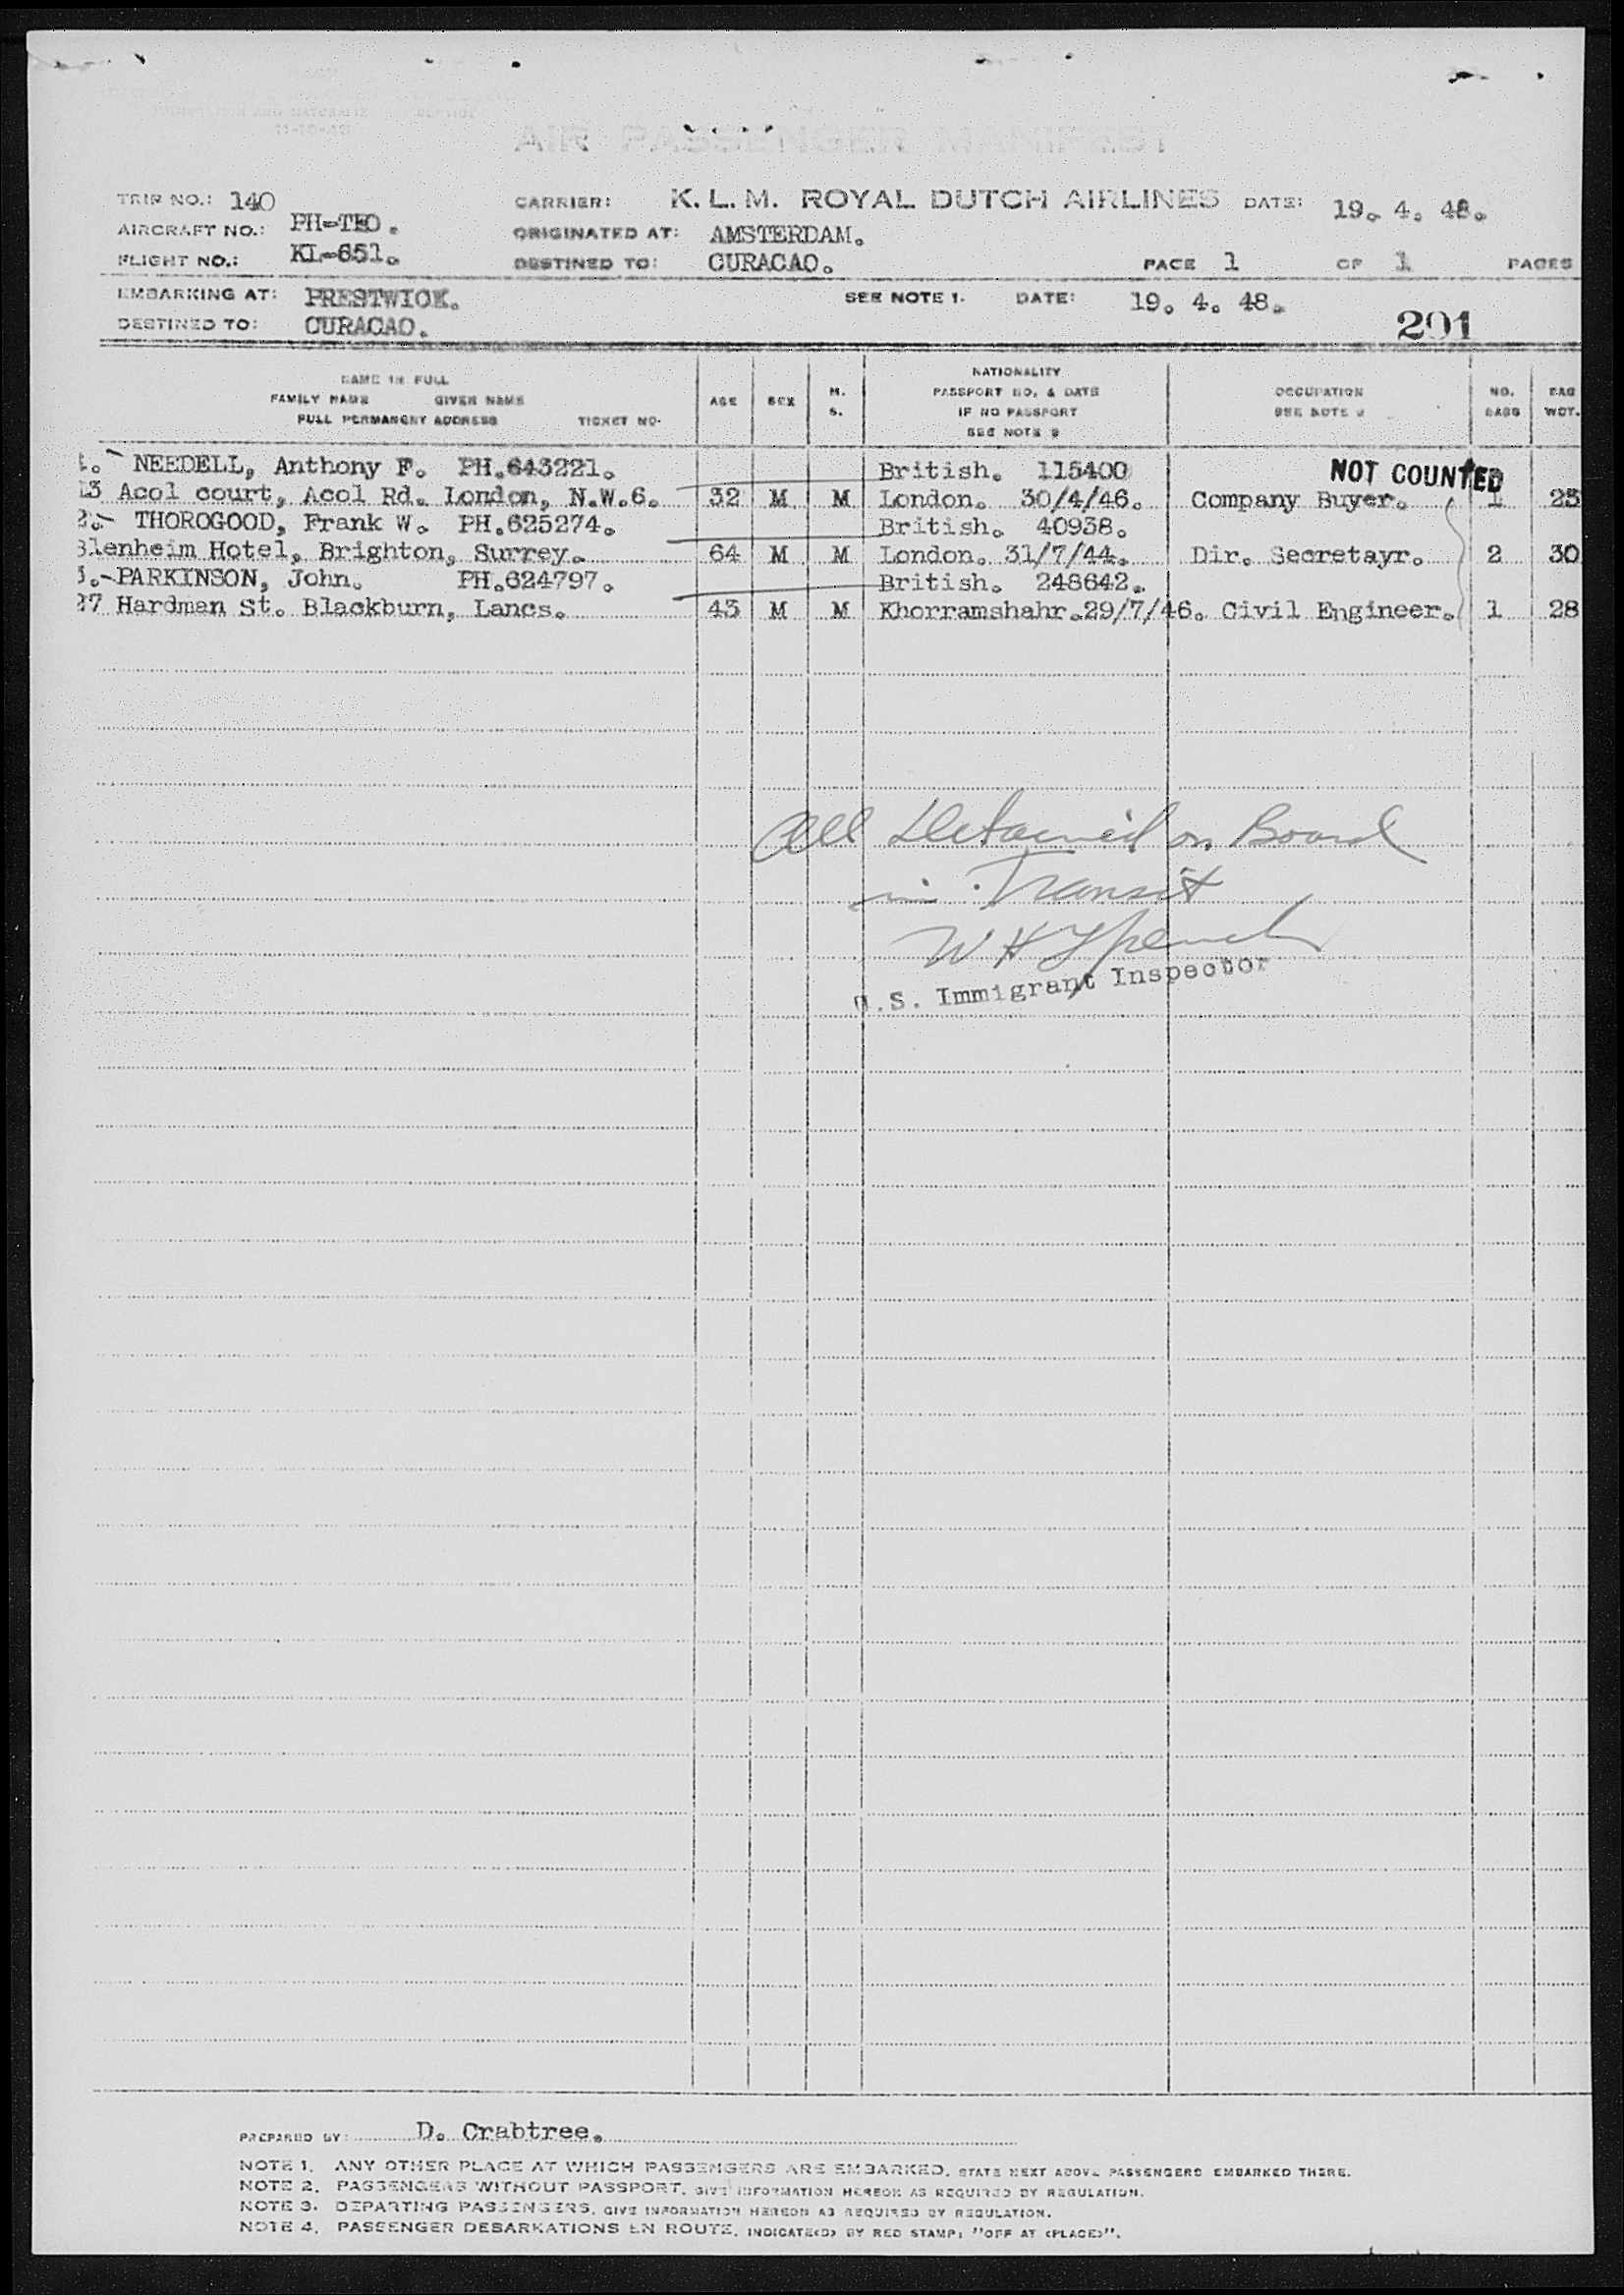 AIR PASSENGER MANIFEST
TRIP NO.: 140 CARRIER: K.L.M. ROYAL DUTCH AIRLINES DATE: 19. 4. 48.
AIRCRAFT NO.: PH-TEO. ORIGINATED AT: AMSTERDAM.
FLIGHT NO.: KL-651. DESTINED TO: CURACAO. PAGE 1 OF 1 PAGES
EMBARKING AT: PRESTWICK. SEE NOTE 1. DATE: 19. 4. 48.
DESTINED TO: CURACAO. 291
NAME IN FULL
FAMILY NAME GIVEN NAME
FULL PERMANENT ADDRESS TICKET NO.
AGE SEX M. S.
NATIONALITY
PASSPORT NO. & DATE
IF NO PASSPORT
SEE NOTE 2
OCCUPATION
SEE NOTE
NO. BAGS
BAG WGT.
1. NEEDELL, Anthony F. PH.643221. British. 115400 NOT COUNTED
13 Acol court, Acol Rd. London, N.W.6. 32 M M London. 30/4/46. Company Buyer. 1 25
2. THOROGOOD, Frank W. PH.625274. British. 40938.
Blenheim Hotel, Brighton, Surrey. 64 M M London. 31/7/44. Dir. Secretayr. 2 30
3. PARKINSON, John. PH.624797. British. 248642.
27 Hardman St. Blackburn, Lancs. 43 M M Khorramshahr.29/7/46. Civil Engineer. 1 28
All Detained on Board
in Transit
W H
U.S. Immigrant Inspector
PREPARED BY: D. Crabtree.
NOTE 1. ANY OTHER PLACE AT WHICH PASSENGERS ARE EMBARKED, STATE NEXT ABOVE PASSENGERS EMBARKED THERE.
NOTE 2. PASSENGERS WITHOUT PASSPORT, GIVE INFORMATION HEREON AS REQUIRED BY REGULATION.
NOTE 3. DEPARTING PASSENGERS, GIVE INFORMATION HEREON AS REQUIRED BY REGULATION.
NOTE 4. PASSENGER DEBARKATIONS EN ROUTE, INDICATE(D) BY RED STAMP: "OFF AT (PLACE)".